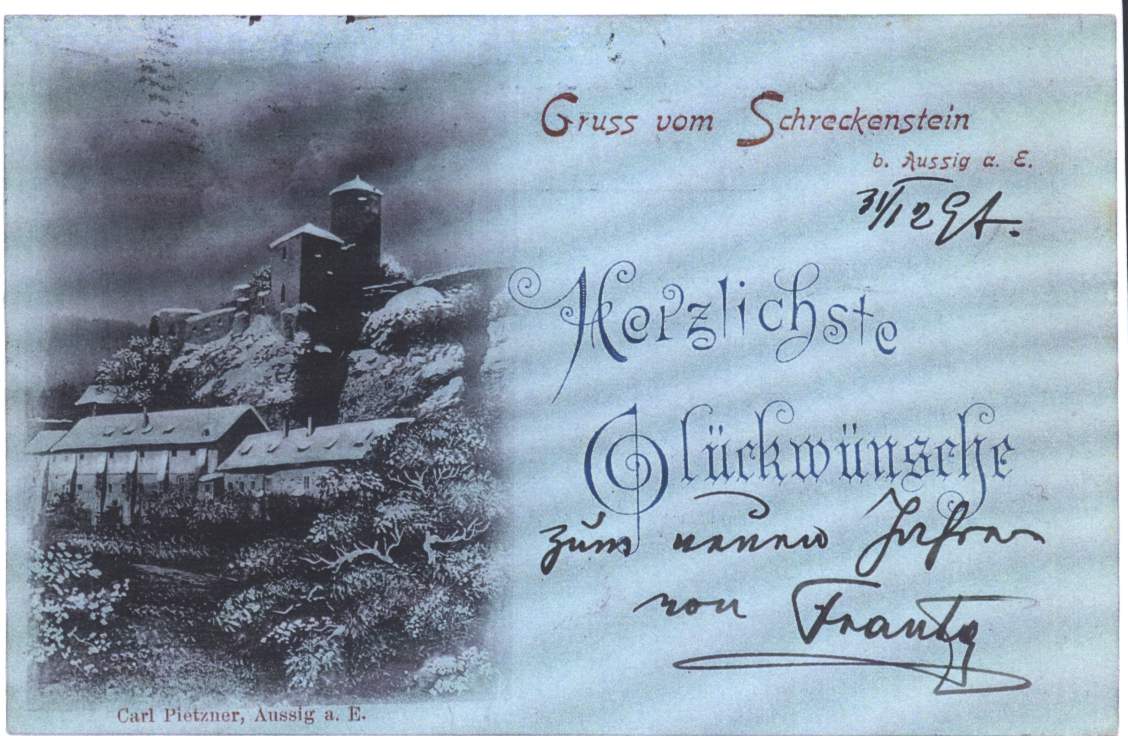 Gruss vom Schreckenstein
b. Aussig a. E.
31/12 97.
Herzlichste
Glückwünsche
zum neuen Jahre
von Frantz
Carl Pietzner, Aussig a. E.